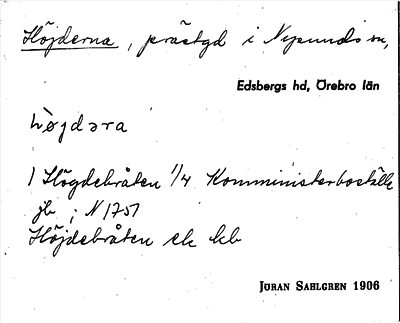 Höjderna, prästgd i Nysunds sn,
Edsbergs hd, Örebro län
hø̀jdəra
1 Högdebråten 1/4 Komministerboställe
jb; N 1751
Höjdebråten ek kb
JÖRAN SAHLGREN 1906